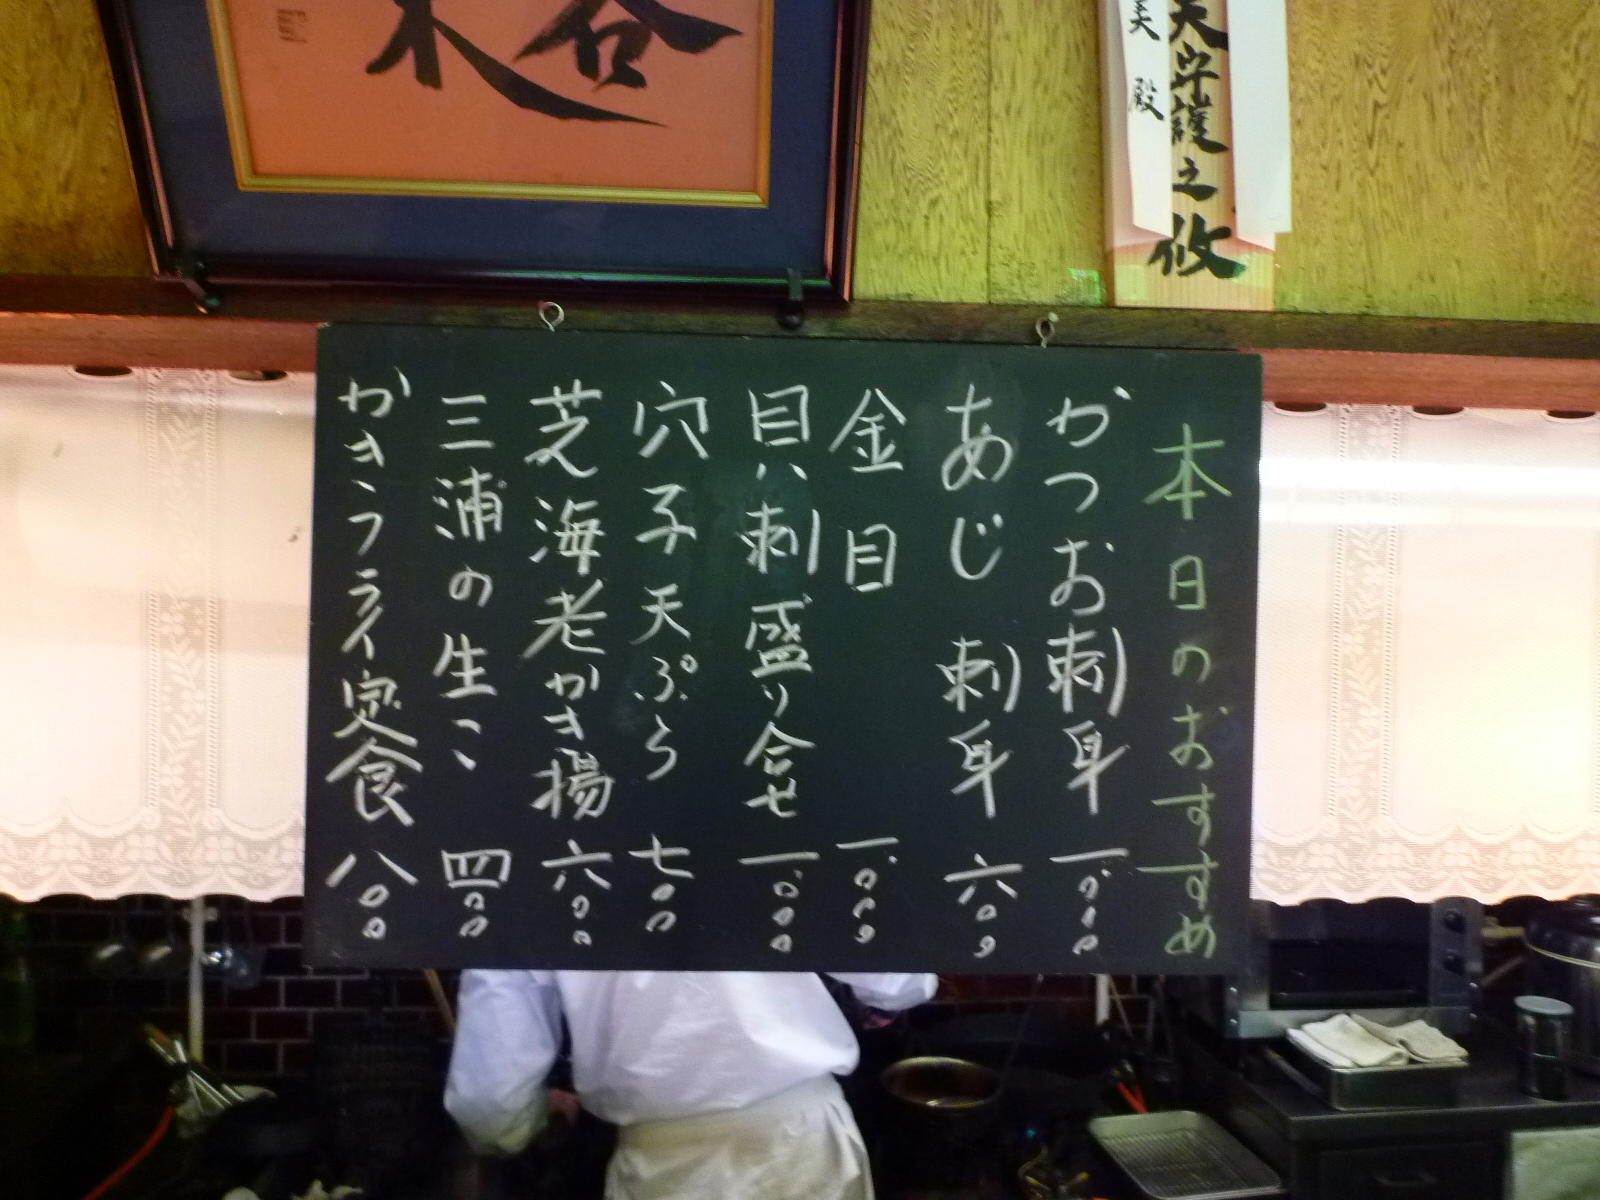 本日のおすすめ
かつお刺身 一、〇〇〇
あじ刺身 六〇〇
金目 一、〇〇〇
貝刺盛り合せ 一、〇〇〇
穴子天ぷら 七〇〇
芝海老かき揚 六〇〇
三浦の生こ 四〇〇
かきフライ定食 八〇〇
天守護之攸
美殿